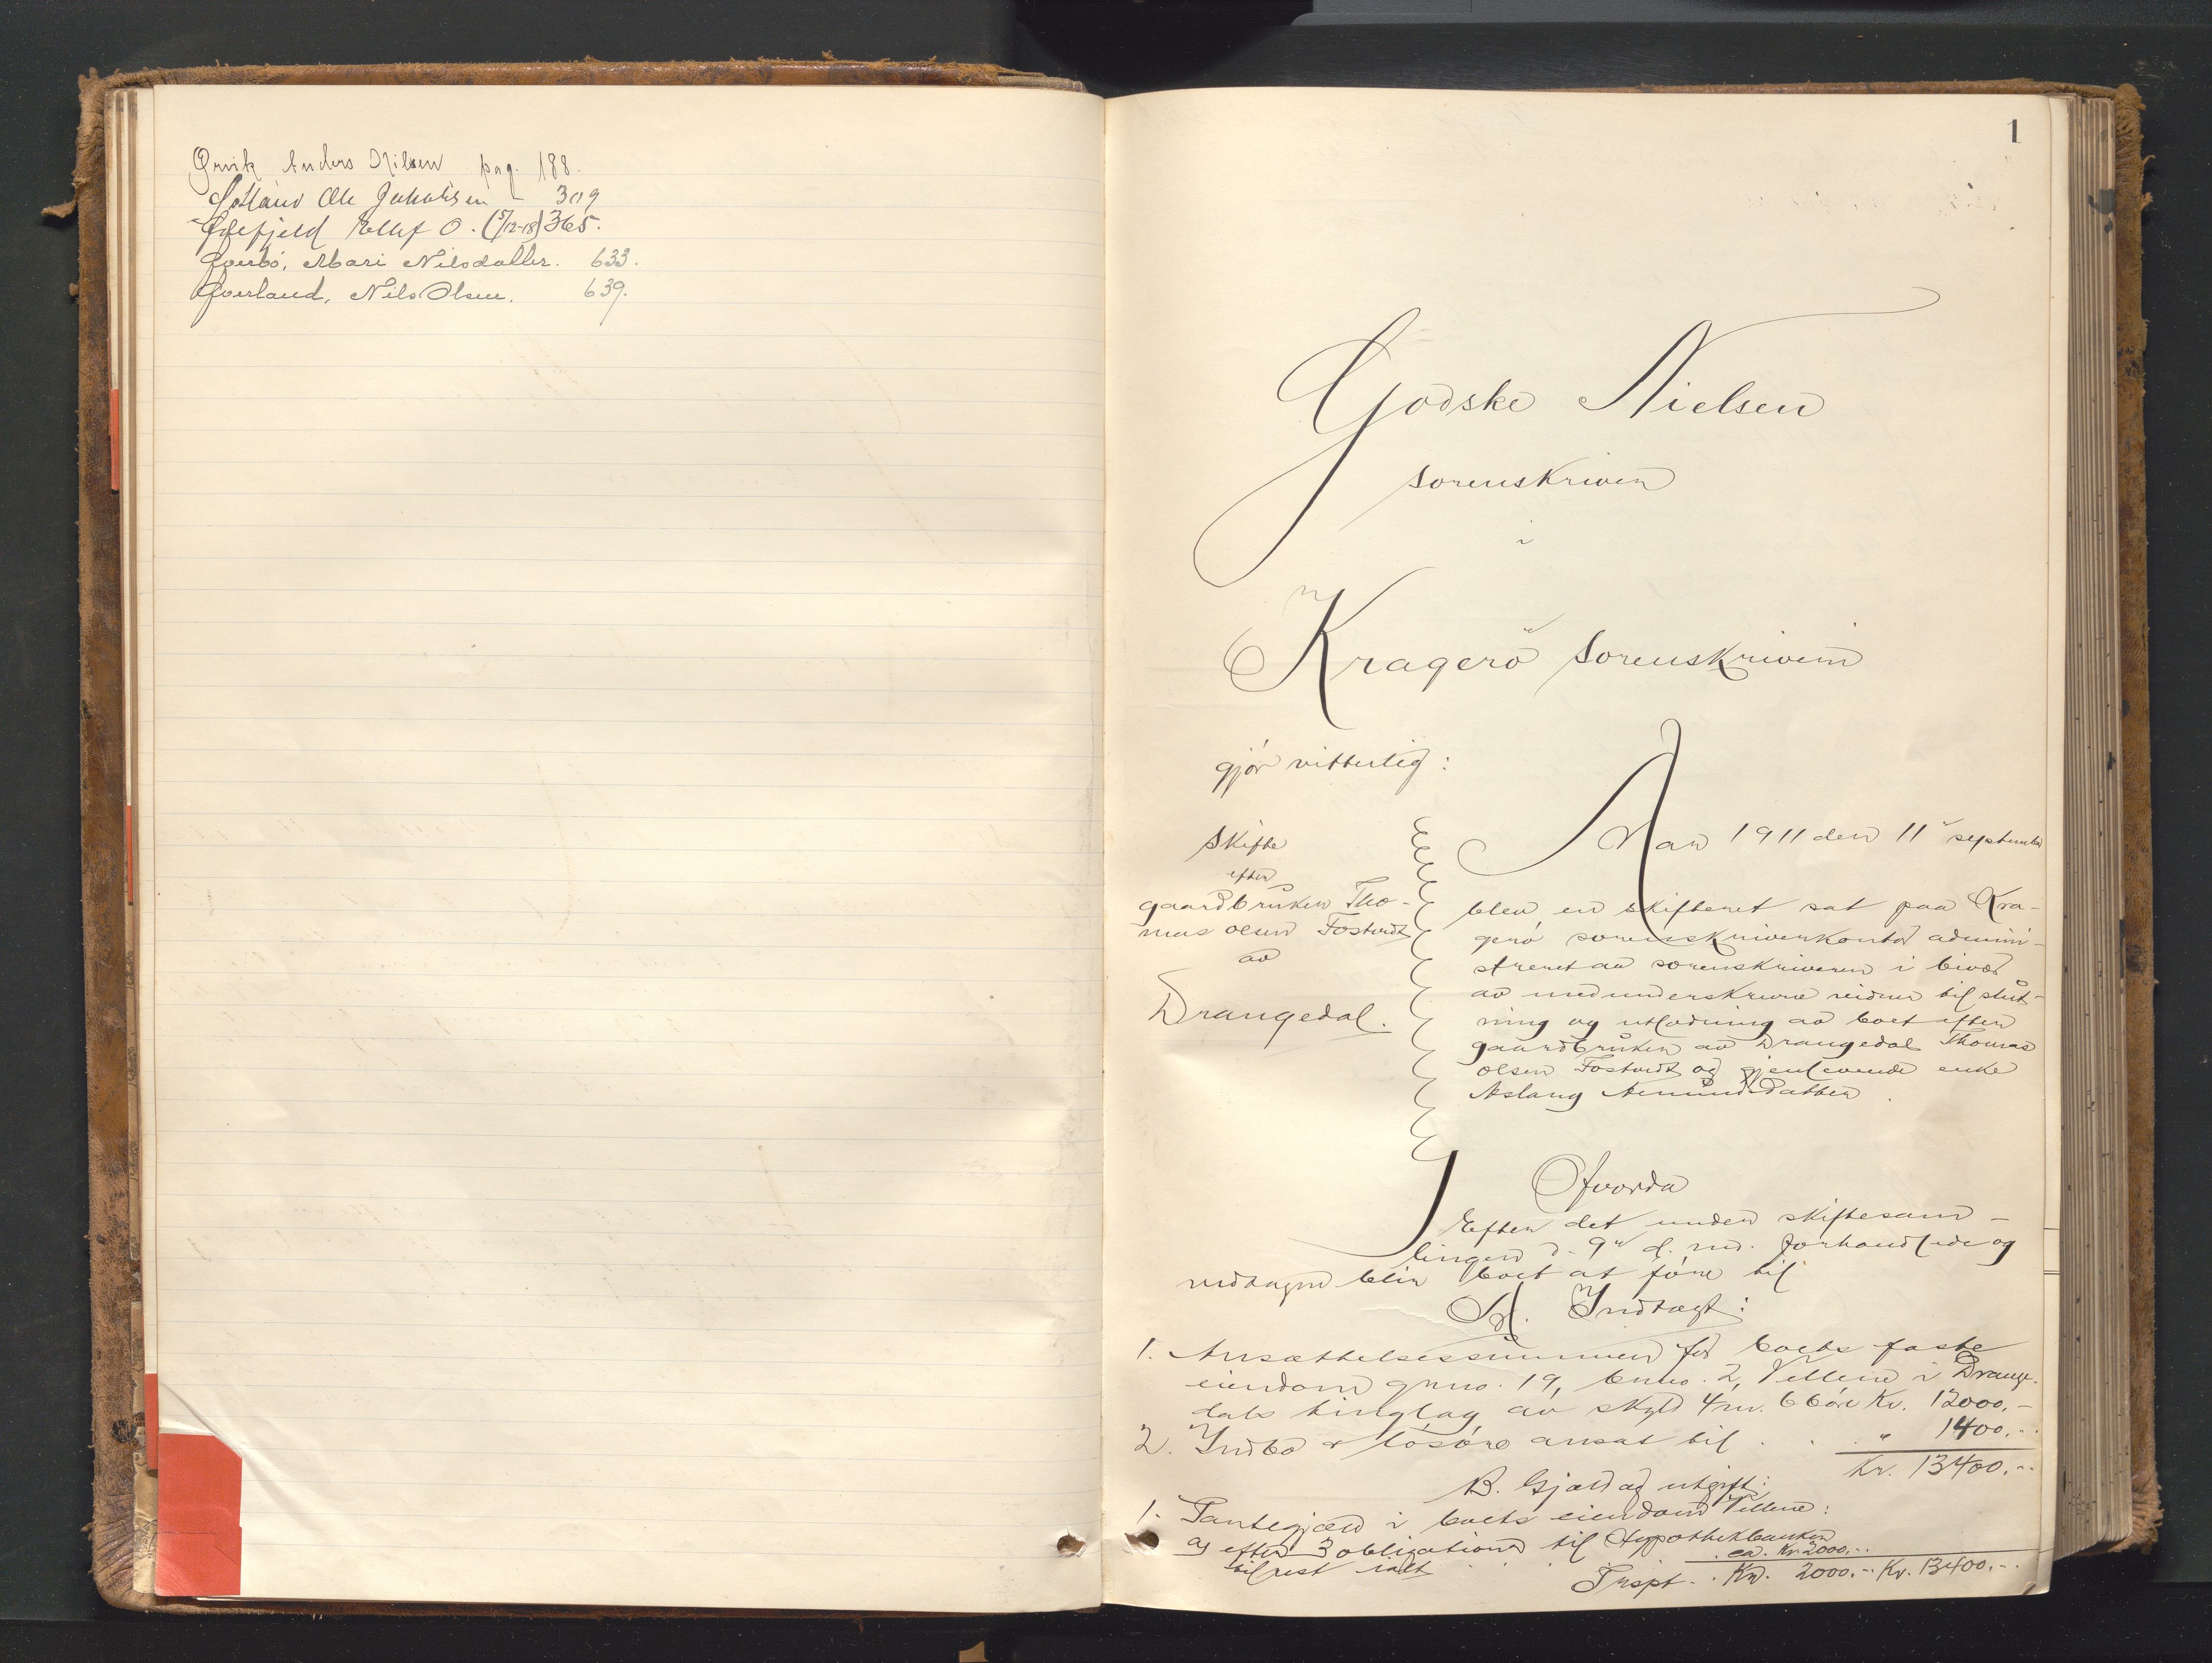 Ørvik Anders Nilsen pag. 188.
Ole Jakobsen - 309
Øifjeld Ellef O. (5/12-18) 365.
Øverbö, Mari Nilsdatter. 633.
Øverland, Nils Olsen. 639.
1
Godske Nielsen
sorenskriver
i
Kragerö sorenskriveri
gjör vitterlig:
Skifte
efter
gaardbruker Tho-
mas Olsen Fostvedt
av
Drangedal.
Aar 1911 den 11te september
blev en skifteret sat paa Kra-
gerö sorenskriverkontor admini-
streret av sorenskriveren i bivær
av medunderskrevne vidner til slut-
ning og utlodning av boet efter
gaardbruker av Drangedal Thomas
Olsen Fostvedt og gjenlevende enke
Aslaug Amundsdatter.
Hvorda
Efter det under skiftesam-
lingen d. 9de d. md. forhandlede og
vedtagne blir boet at före til
A. Indtægt:
1. Ansættelsessummen for boets faste
eiendom gnno. 19, bnno. 2, Vellene i Drange-
dals tinglag av skyld 4 m. 66 öre Kr. 12000.-
2. Indbo & lösöre ansat til . . . " 1400.-
Kr. 13400.-
B. Gjæld og utgift:
1. Pantegjæld i boets eiendom Vellene:
a, efter 3 obligationer til Hypothekbanken
tilrest ialt . . . ca. Kr. 2000.-
Trspt. . Kr. 2000.- Kr. 13400.-